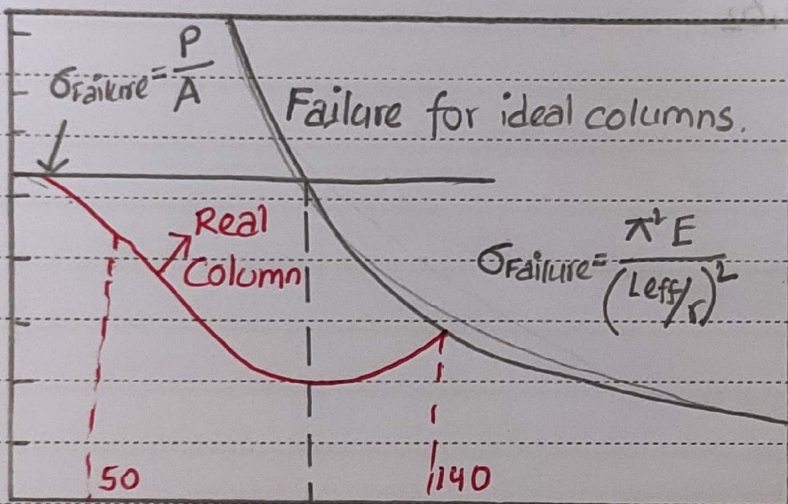 σFailure = P/A
Failure for ideal columns.
Real
Column
σFailure = π²E/(Leff/r)²
50
140